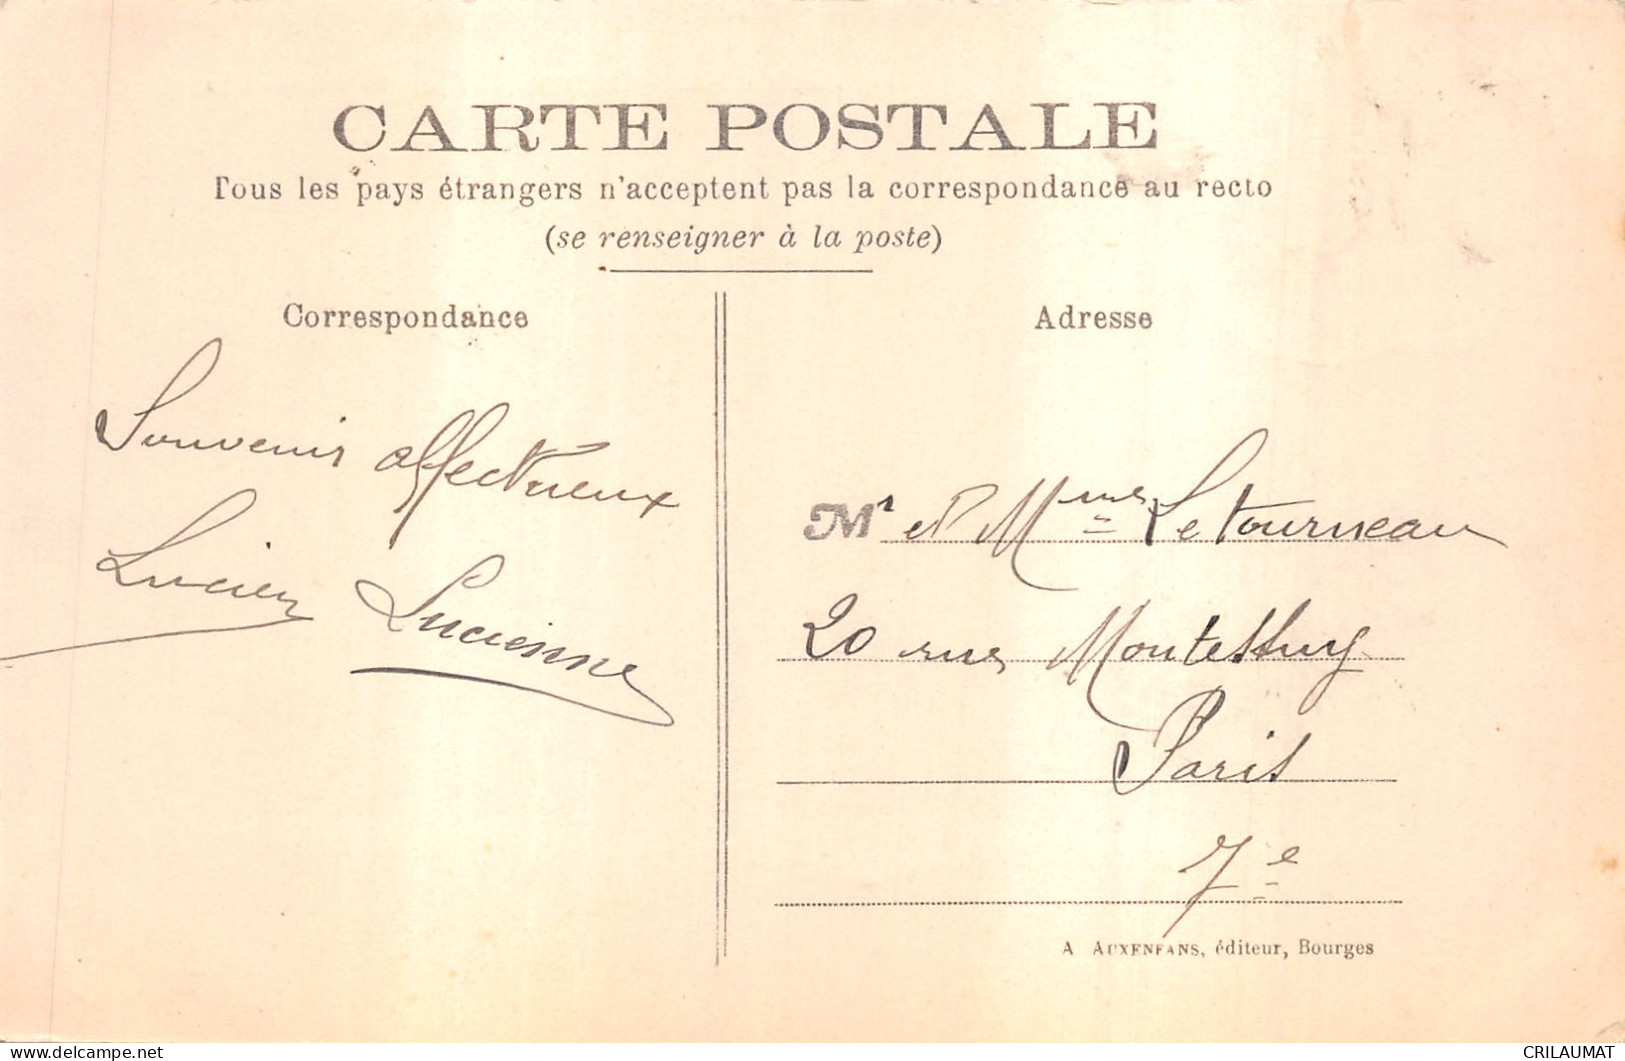 CARTE POSTALE
Tous les pays étrangers n'acceptent pas la correspondance au recto
(se renseigner à la poste)
Correspondance
Souvenir affectueux
Lucien Lucienne
Adresse
Mr et Mme Letourneau
20 rue Montessuy
Paris
7e
A AUXENFANS, éditeur, Bourges
delcampe.net
CRILAUMAT